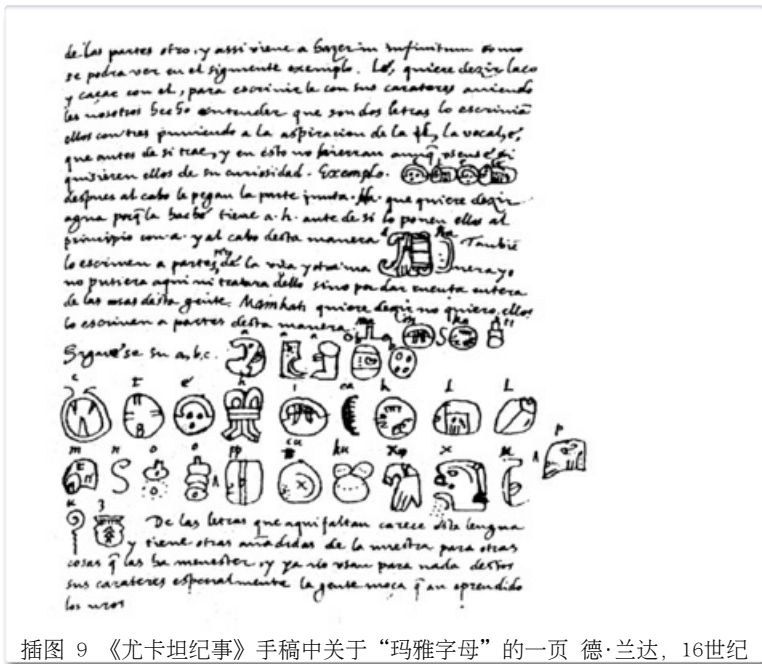 de las partes otro, y assi viene a hazer in infinitum como
se podra ver en el siguiente exemplo. Lé, quiere dezir laço
y caçar con el, para escrivirle con sus carateres aviendo
les nosotros hecho entender que son dos letras lo escrivian
ellos con tres puniendo a la aspiracion de la la vocal é,
que antes de si trae, y en esto no hierran aunq̃
quisieren ellos de su curiosidad. Exemplo.
despues al cabo le pegan la parte junta. Ha que quiere dezir
agua porq̃ la hache tiene a. h. ante de si lo ponen ellos al
principio con a. y al cabo desta manera a ha Tambiē
lo escriven a partes de la una y otra ma nera yo
no pusiera aqui ni tratara dello sino por dar cuenta entera
de las cosas desta gente. Mainkati quiere dezir no quiero, ellos
lo escriven a partes desta manera. ma i n ka ti
Siguese su a, b, c. a a a b b
c t é h i ca k l l
m n o o pp cu ku x x u p
u z
De las letras que aqui faltan carece esta lengua
y tiene otras añadidas de la nuestra para otras
cosas q̃ las ha menester, y ya no usan para nada destos
sus carateres especialmente la gente moça q̃ an aprendido
los nros
插图 9 《尤卡坦纪事》手稿中关于“玛雅字母”的一页 德·兰达, 16世纪